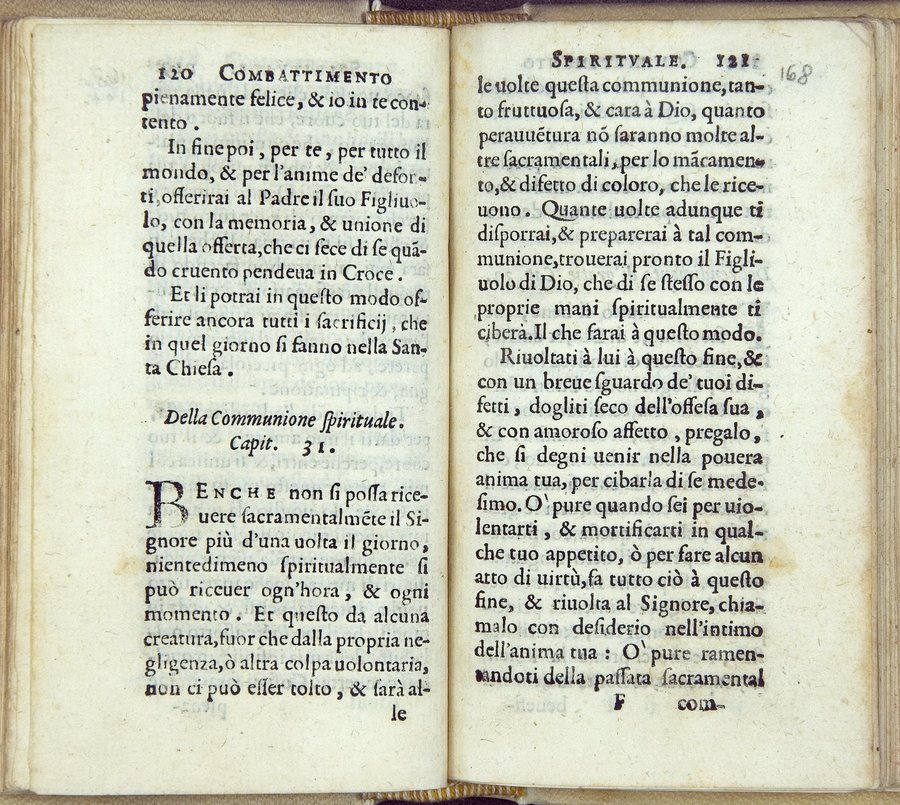 120 COMBATTIMENTO
pienamente felice, & io in te con-
tento .
In fine poi , per te , per tutto il
mondo, & per l'anime de' defon-
ti, offerirai al Padre il suo Figliuo-
lo, con la memoria, & unione di
quella offerta, che ei fece di se quā-
do cruento pendeua in Croce .
Et li potrai in questo modo of-
ferire ancora tutti i sacrificij , che
in quel giorno si fanno nella San-
ta Chiesa .
Della Communione spirituale .
Capit. 31.
BENCHE non si possa rice-
uere sacramentalmēte il Si-
gnore più d'una uolta il giorno,
nientedimeno spiritualmente si
può riceuer ogn'hora , & ogni
momento . Et questo da alcuna
creatura, fuor che dalla propria ne-
gligenza, ò altra colpa uolontaria,
non ci può esser tolto , & sarà al-
le
SPIRITVALE. 121
168
le uolte questa communione, tan-
to fruttuosa, & cara à Dio, quanto
perauuētura nō saranno molte al-
tre sacramentali, per lo mācamen-
to, & difetto di coloro, che le rice-
uono . Quante uolte adunque ti
disporrai, & preparerai à tal com-
munione, trouerai pronto il Figli-
uolo di Dio, che di se stesso con le
proprie mani spiritualmente ti
ciberà. Il che farai à questo modo.
Riuoltati à lui à questo fine, &
con un breue sguardo de' tuoi di-
fetti , dogliti seco dell'offesa sua ,
& con amoroso affetto , pregalo ,
che si degni uenir nella pouera
anima tua, per cibarla di se mede-
simo. O' pure quando sei per uio-
lentarti , & mortificarti in qual-
che tuo appetito, ò per fare alcun
atto di uirtù, fa tutto ciò à questo
fine, & riuolta al Signore, chia-
malo con desiderio nell'intimo
dell'anima tua : O' pure ramen-
tandoti della passata sacramental
F com-